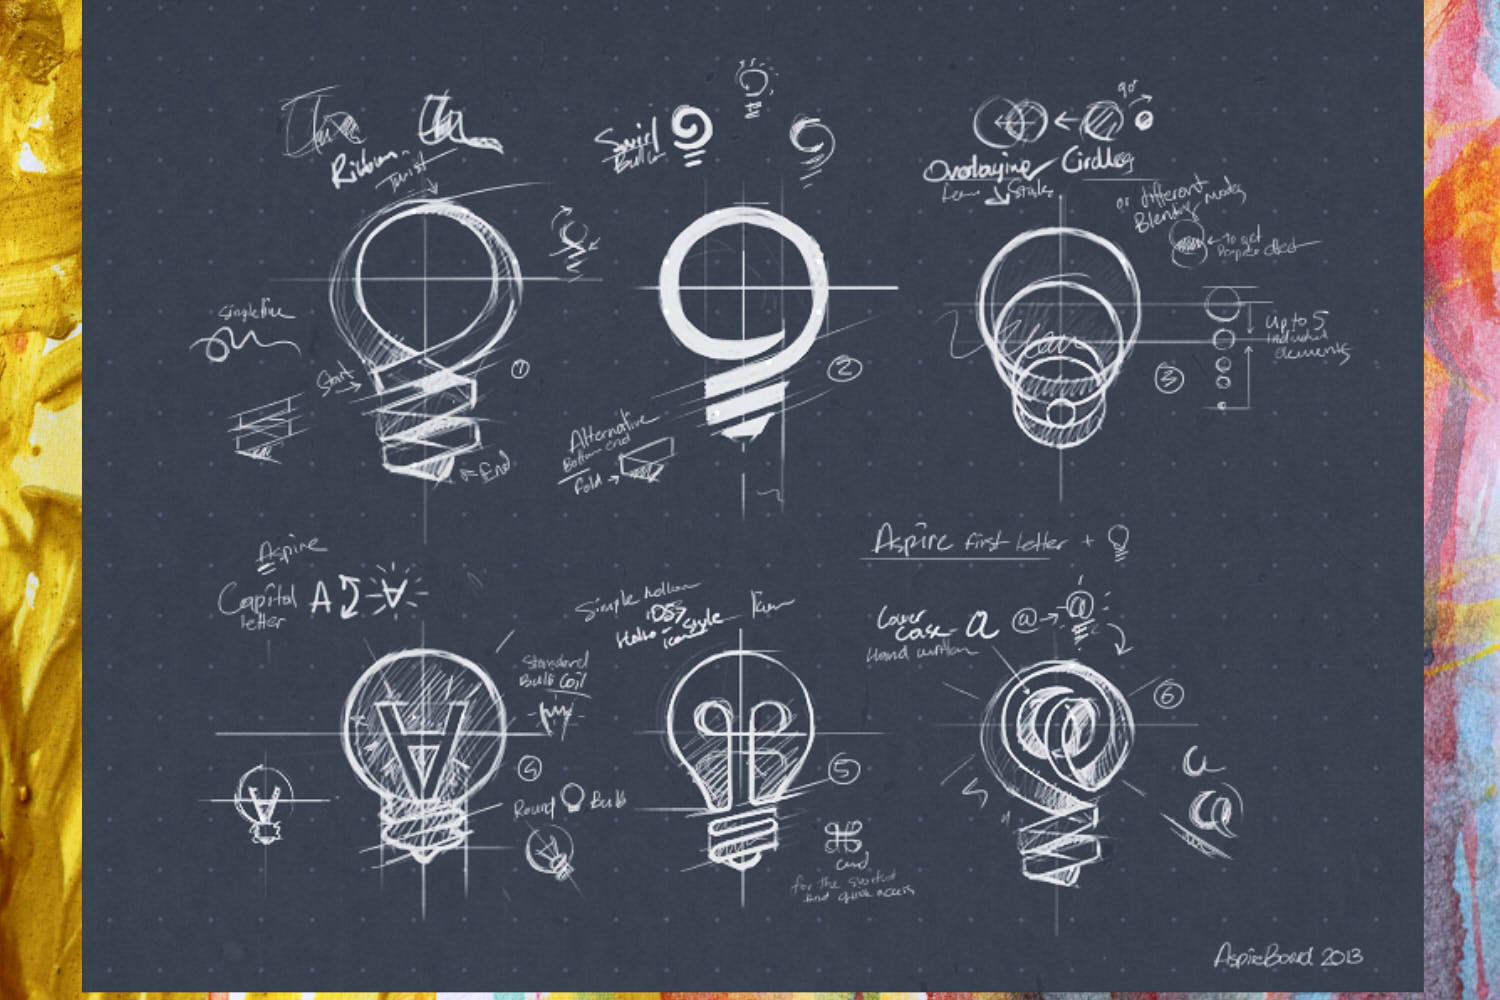 Ribbon
Twist
Single line
Start
End
1
Swirl
Bulb
2
Alternative
Bottom end
Fold
90°
Overlaying Circles
or different
Blending modes
to get
Proper effect
Up to 5
Individual
elements
3
Aspire
Capital A
letter
Standard
Bulb Coil
4
Round Bulb
Simple hollow
iOS7
style
icon
5
⌘
cmd
for the shortcut
and quick access
Aspire first letter +
Lower
case a
Hand written
a
a
6
a
a
AspireBoard 2013